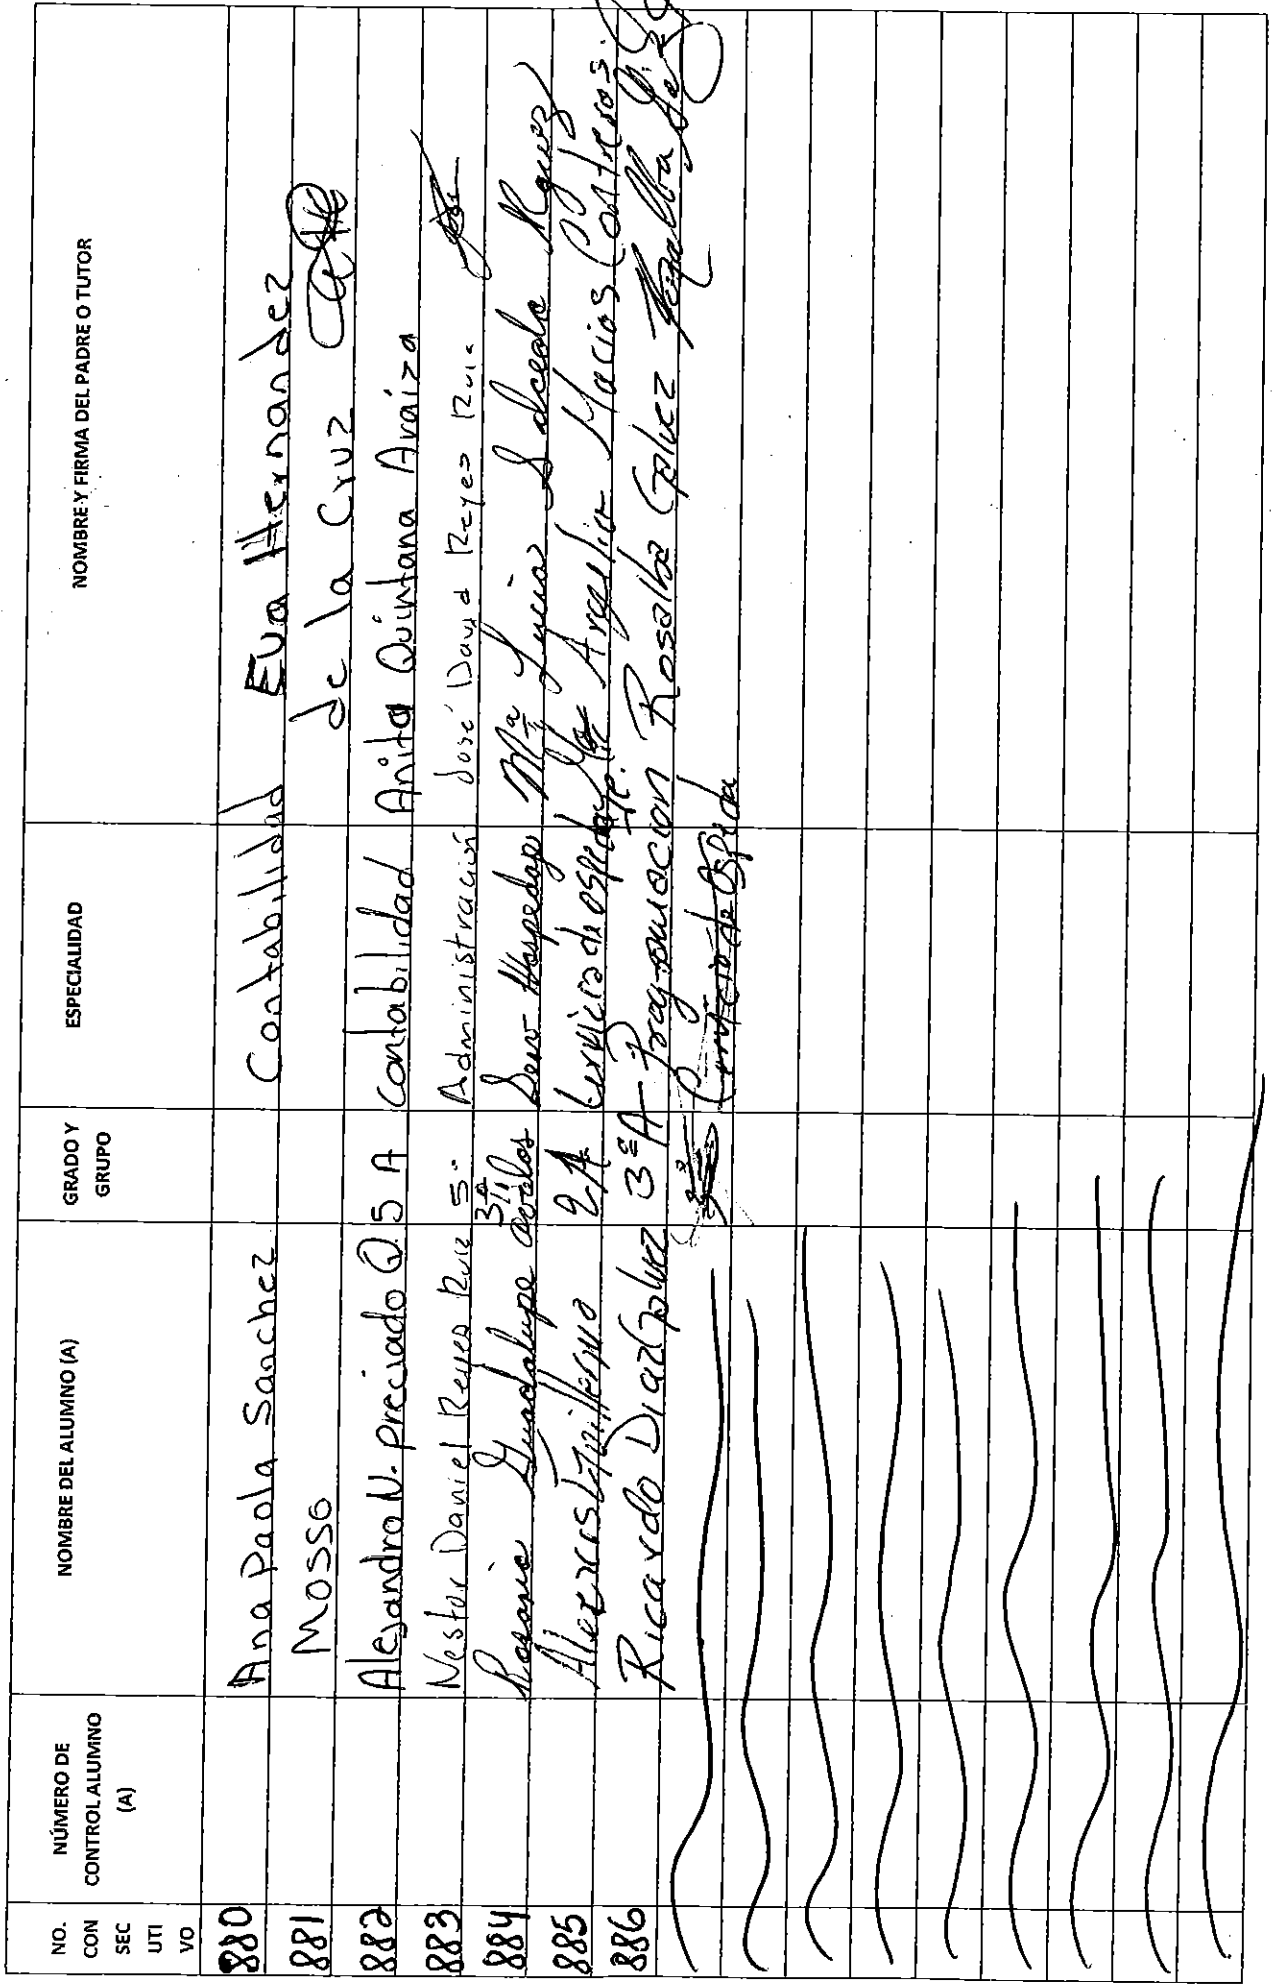 NO. CONSECUTIVO NÚMERO DE CONTROL ALUMNO (A) NOMBRE DEL ALUMNO (A) GRADO Y GRUPO ESPECIALIDAD NOMBRE Y FIRMA DEL PADRE O TUTOR
880 Ana Paola Sanchez Contabilidad Eva Hernandez
881 Mosso de la Cruz
882 Alejandro N. preciado Q 5 A Contabilidad Anita Quintana Araiza
883 Nestor Daniel Reyes Ruiz 5- Administración José David Reyes Ruiz
884 Rosario Guadalupe avalos 3º Serv Hospedaje Mª Lucia Salcedo
885 2A Servicio de Macias Contreras.
886 Ricardo Diaz Galvez 3º A- Programacion Rosalba Galvez